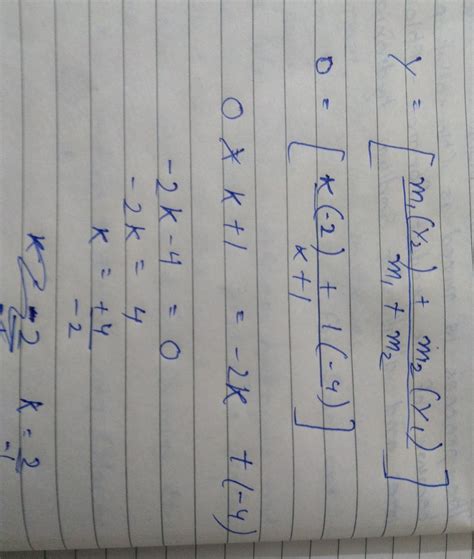 y = [ m₁(y₂) + m₂(y₁) / m₁ + m₂ ]
0 = [ k(-2) + 1(-4) / k+1 ]
0 × k+1 = -2k + (-4)
-2k-4 = 0
-2k = 4
k = +4/-2
k = 2/-1